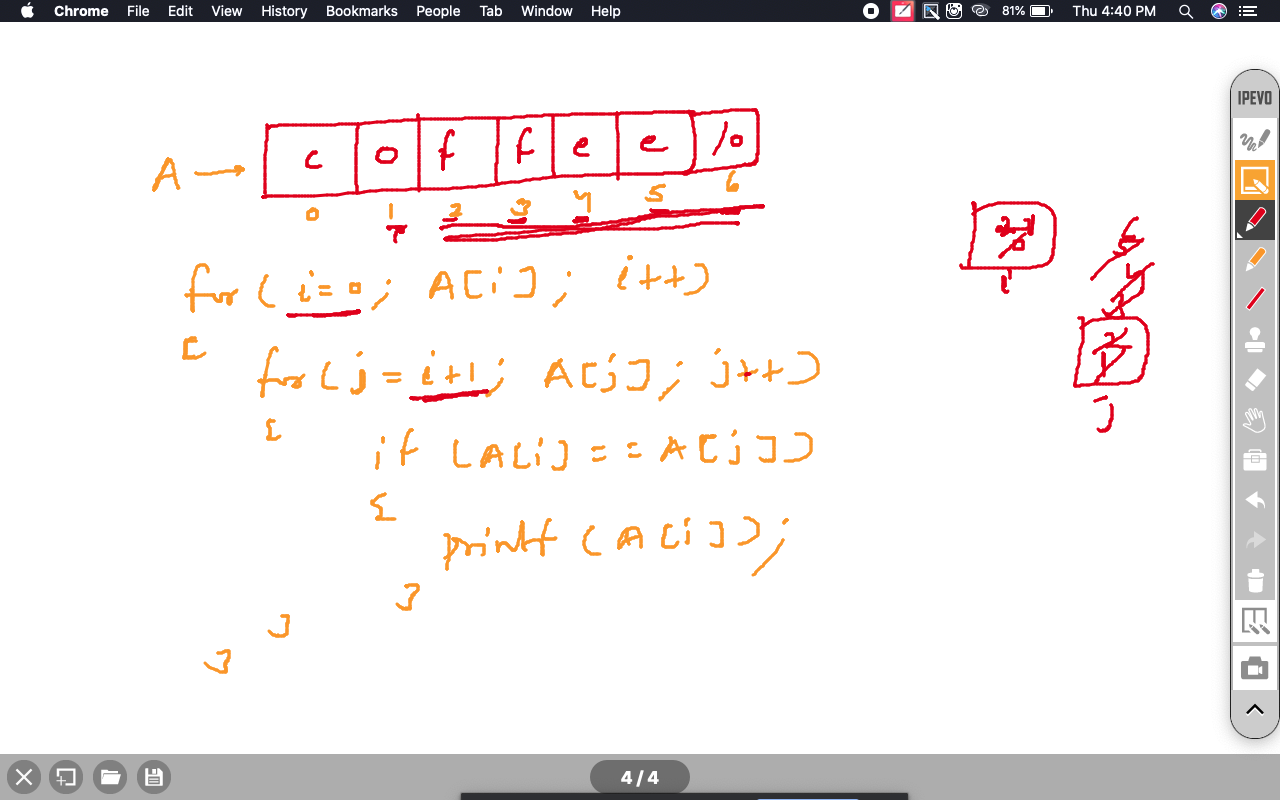 Chrome File Edit View History Bookmarks People Tab Window Help 81% Thu 4:40 PM
IPEVO
A → c o f f e e \0
0 1 2 3 4 5 6
for ( i=0; A[i]; i++)
{
for ( j = i+1; A[j]; j++)
{
if (A[i] == A[j])
{
printf (A[i]);
}
}
}
i
j
4 / 4